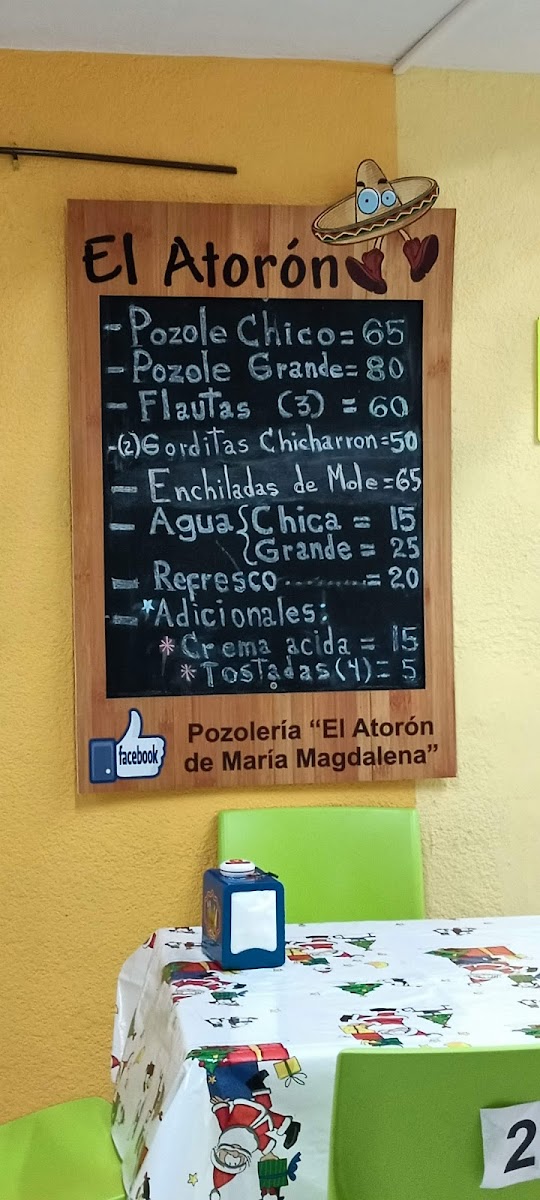 El Atorón
- Pozole Chico = 65
- Pozole Grande = 80
- Flautas (3) = 60
-(2) Gorditas Chicharron = 50
- Enchiladas de Mole = 65
- Agua { Chica = 15
Grande = 25
- Refresco ......... = 20
- *Adicionales:
* Crema acida = 15
* Tostadas (4) = 5
facebook
Pozolería “El Atorón
de María Magdalena”
2